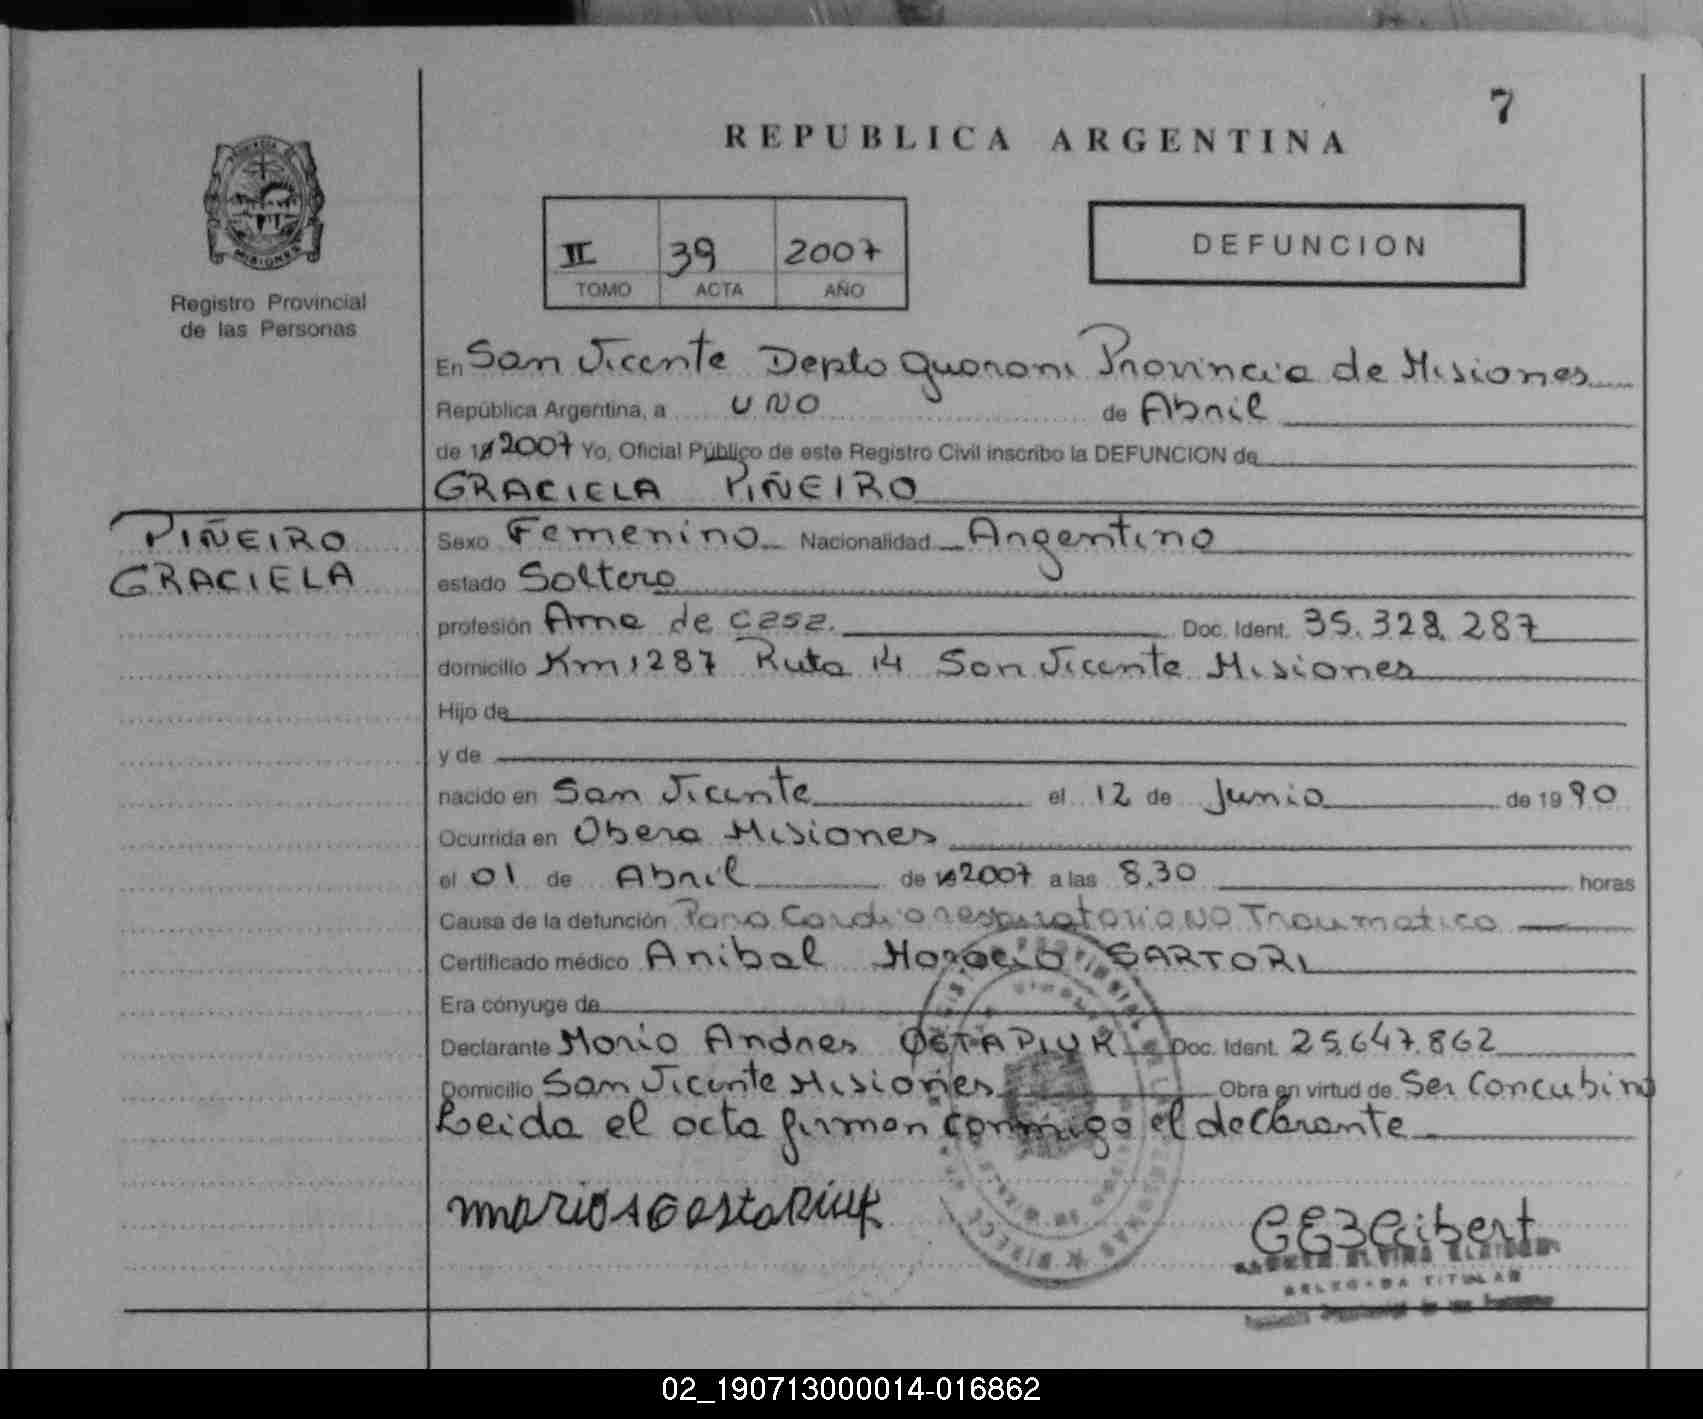 7
REPUBLICA ARGENTINA
PROVINCIA DE
MISIONES
Registro Provincial
de las Personas
II 39 2007
TOMO ACTA AÑO
DEFUNCION
En San Vicente Depto Guarani Provincia de Misiones
República Argentina, a UNO de Abril
de 19 2007 Yo, Oficial Público de este Registro Civil inscribo la DEFUNCION de
GRACIELA PIÑEIRO
PIÑEIRO
GRACIELA
Sexo Femenino Nacionalidad Argentina
estado Soltera
profesión Ama de casa. Doc. Ident. 35.328.287
domicilio Km 1287 Ruta 14 San Vicente Misiones
Hijo de
y de
nacido en San Vicente el 12 de Junio de 19 90
Ocurrida en Obera Misiones
el 01 de Abril de 19 2007 a las 8,30 horas
Causa de la defunción Paro Cardiorespiratorio NO Traumatico
Certificado médico Anibal Horacio SARTORI
Era cónyuge de
Declarante Mario Andres OSTAPIUK Doc. Ident. 25.647.862
Domicilio San Vicente Misiones Obra en virtud de Ser Concubino
Leida el acta firman conmigo el declarante
DELEGADA TITULAR
02_190713000014-016862